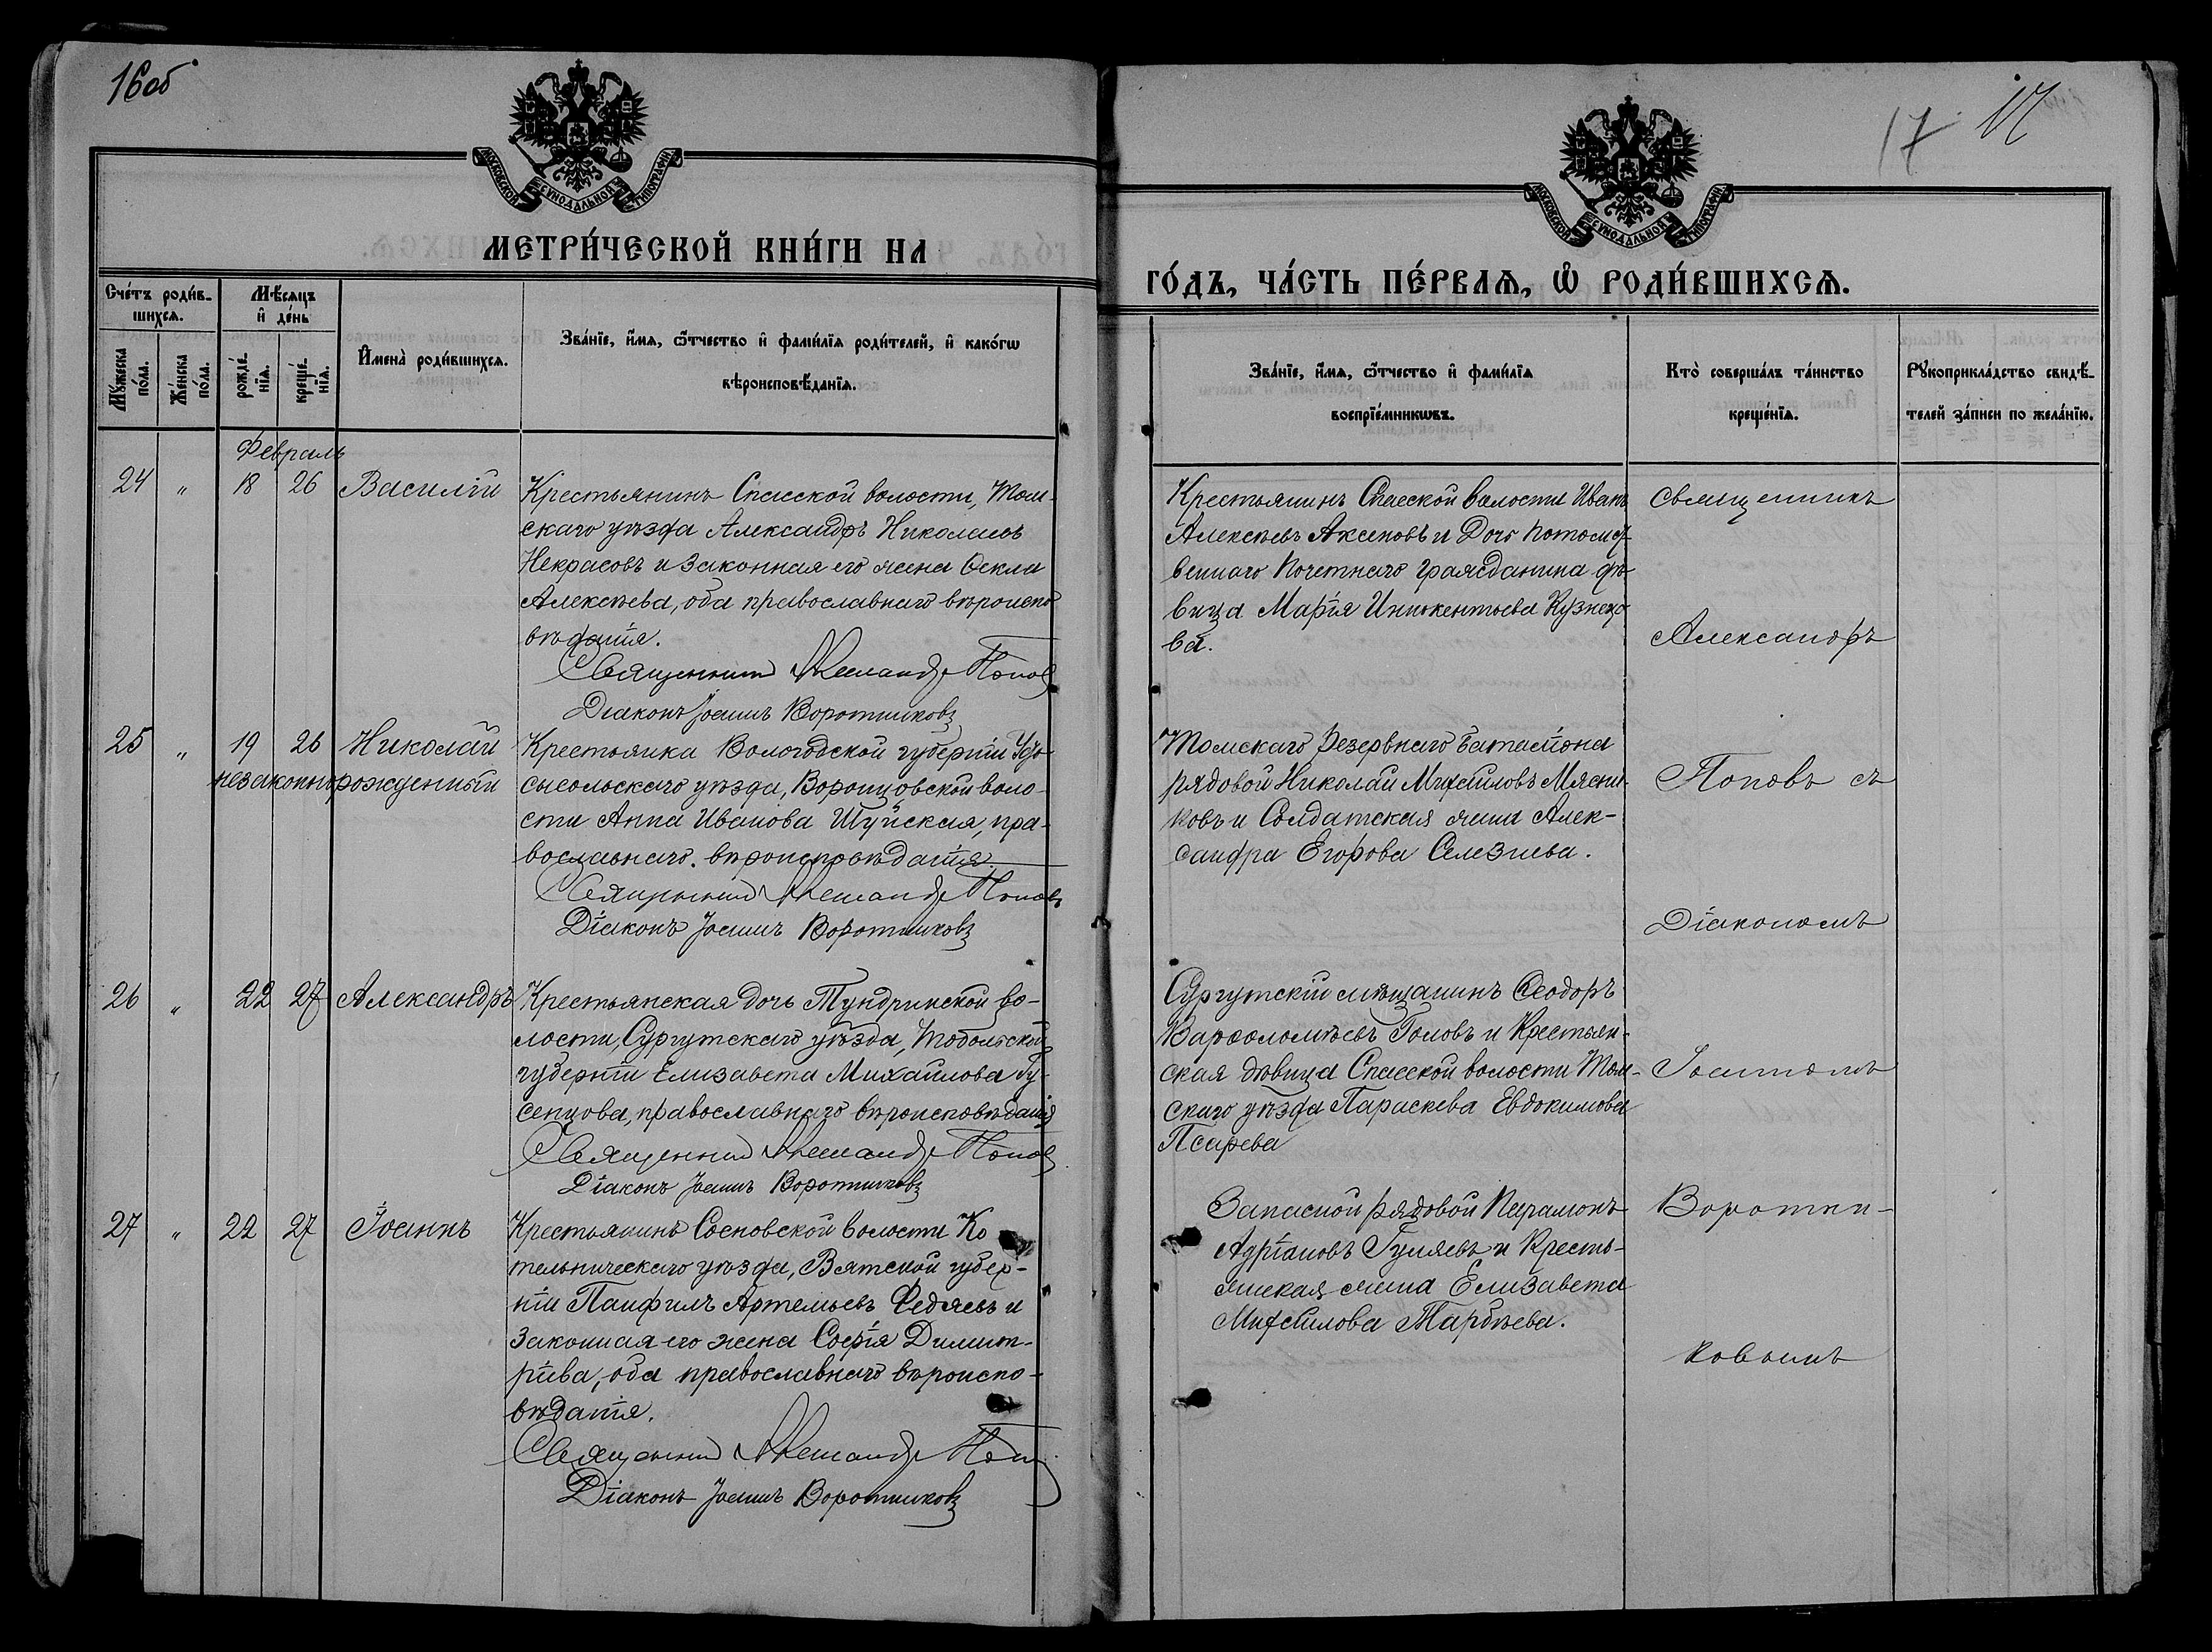 16 об
МОСКОВСКОЙ СѴНОДАЛЬНОЙ ТИПОГРАФІИ
МЕТРИ́ЧЕСКОЙ КНИ́ГИ НА
Сче́тъ роди́в-
шихсѧ.
Мѣ́сѧцъ
и҆ де́нь
Мꙋ́жеска
по́ла.
Же́нска
по́ла.
рожде́-
нїѧ.
креще́-
нїѧ.
И҆мена̀ роди́вшихсѧ.
Зва́нїе, и҆́мѧ, ѻ҆́тчество и҆ фами́лїѧ роди́телей, и҆ како́гѡ
вѣроисповѣ́данїѧ.
Февраль
24 " 18 26 Василій
Крестьянинъ Спасской волости, Том-
скаго уѣзда Александръ Николаевъ
Некрасовъ и законная его жена Ѳекла
Алексѣева, оба православнаго вѣроиспо
вѣданія.
Священникъ Александръ Поповъ
Діаконъ Іоаннъ Воротниковъ
25 " 19 26 Николай
незаконнорожденный
Крестьянка Вологодской губерніи Усть-
сысольскаго уѣзда, Воронцовской воло-
сти Анна Иванова Шуйская, пра-
вославнаго вѣроисповѣданія.
Священникъ Александръ Поповъ
Діаконъ Іоаннъ Воротниковъ
26 " 22 27 Александръ
Крестьянская дочь Тундринской во-
лости, Сургутскаго уѣзда, Тобольской
губерніи Елизавета Михаилова Ту-
сенцова, православнаго вѣроисповѣданія
Священникъ Александръ Поповъ
Діаконъ Іоаннъ Воротниковъ
27 " 22 27 Іоаннъ
Крестьянинъ Сосновской волости Ко
тельническаго уѣзда, Вятской губер-
ніи Панфилъ Артемьевъ Ѳедяевъ и
законная его жена Софія Димит-
ріева, оба православнаго вѣроиспо-
вѣданія.
Священникъ Александръ Поповъ
Діаконъ Іоаннъ Воротниковъ
17 17
МОСКОВСКОЙ СѴНОДАЛЬНОЙ ТИПОГРАФІИ
ГО́ДЪ, ЧА́СТЬ ПЕ́РВАѦ, Ѡ҆ РОДИ́ВШИХСѦ.
Зва́нїе, и҆́мѧ, ѻ҆́тчество и҆ фами́лїѧ
воспрїе́мникѡвъ.
Кто̀ соверша́лъ та́инство
креще́нїѧ.
Рꙋкоприкла́дство свидѣ́-
телей за́писи по жела́нїю.
Крестьянинъ Спасской волости Иванъ
Алексѣевъ Аксеновъ и Дочь потомст-
веннаго Почетнаго гражданина дѣ-
вица Марія Иннокентьева Кузнецо
ва.
Томскаго Резервнаго Баталіона
рядовой Николай Михаиловъ Мясни-
ковъ и Солдатская жена Алек-
сандра Егорова Селезнева.
Сургутскій мѣщанинъ Ѳеодоръ
Варѳоломѣевъ Головъ и Крестьян-
ская дѣвица Спасской волости Том-
скаго уѣзда Параскева Евдокимова
Псарева
Запасной рядовой Парамонъ
Адріановъ Гуляевъ и Кресть-
янская жена Елизавета
Михаилова Тарбѣева.
Священникъ
Александръ
Поповъ съ
Діакономъ
Іоанномъ
Воротни-
ковымъ